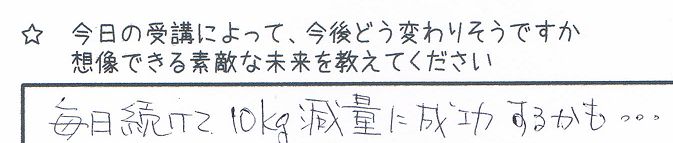 ☆ 今日の受講によって、今後どう変わりそうですか
想像できる素敵な未来を教えてください
毎日続けて10kg減量に成功するかも...